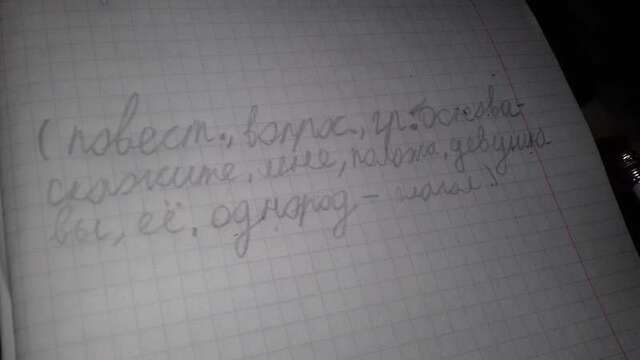 (повест., вопрос., гр. основа-
скажите, мне, похожа, девушка
вы, её, однород - глагол)